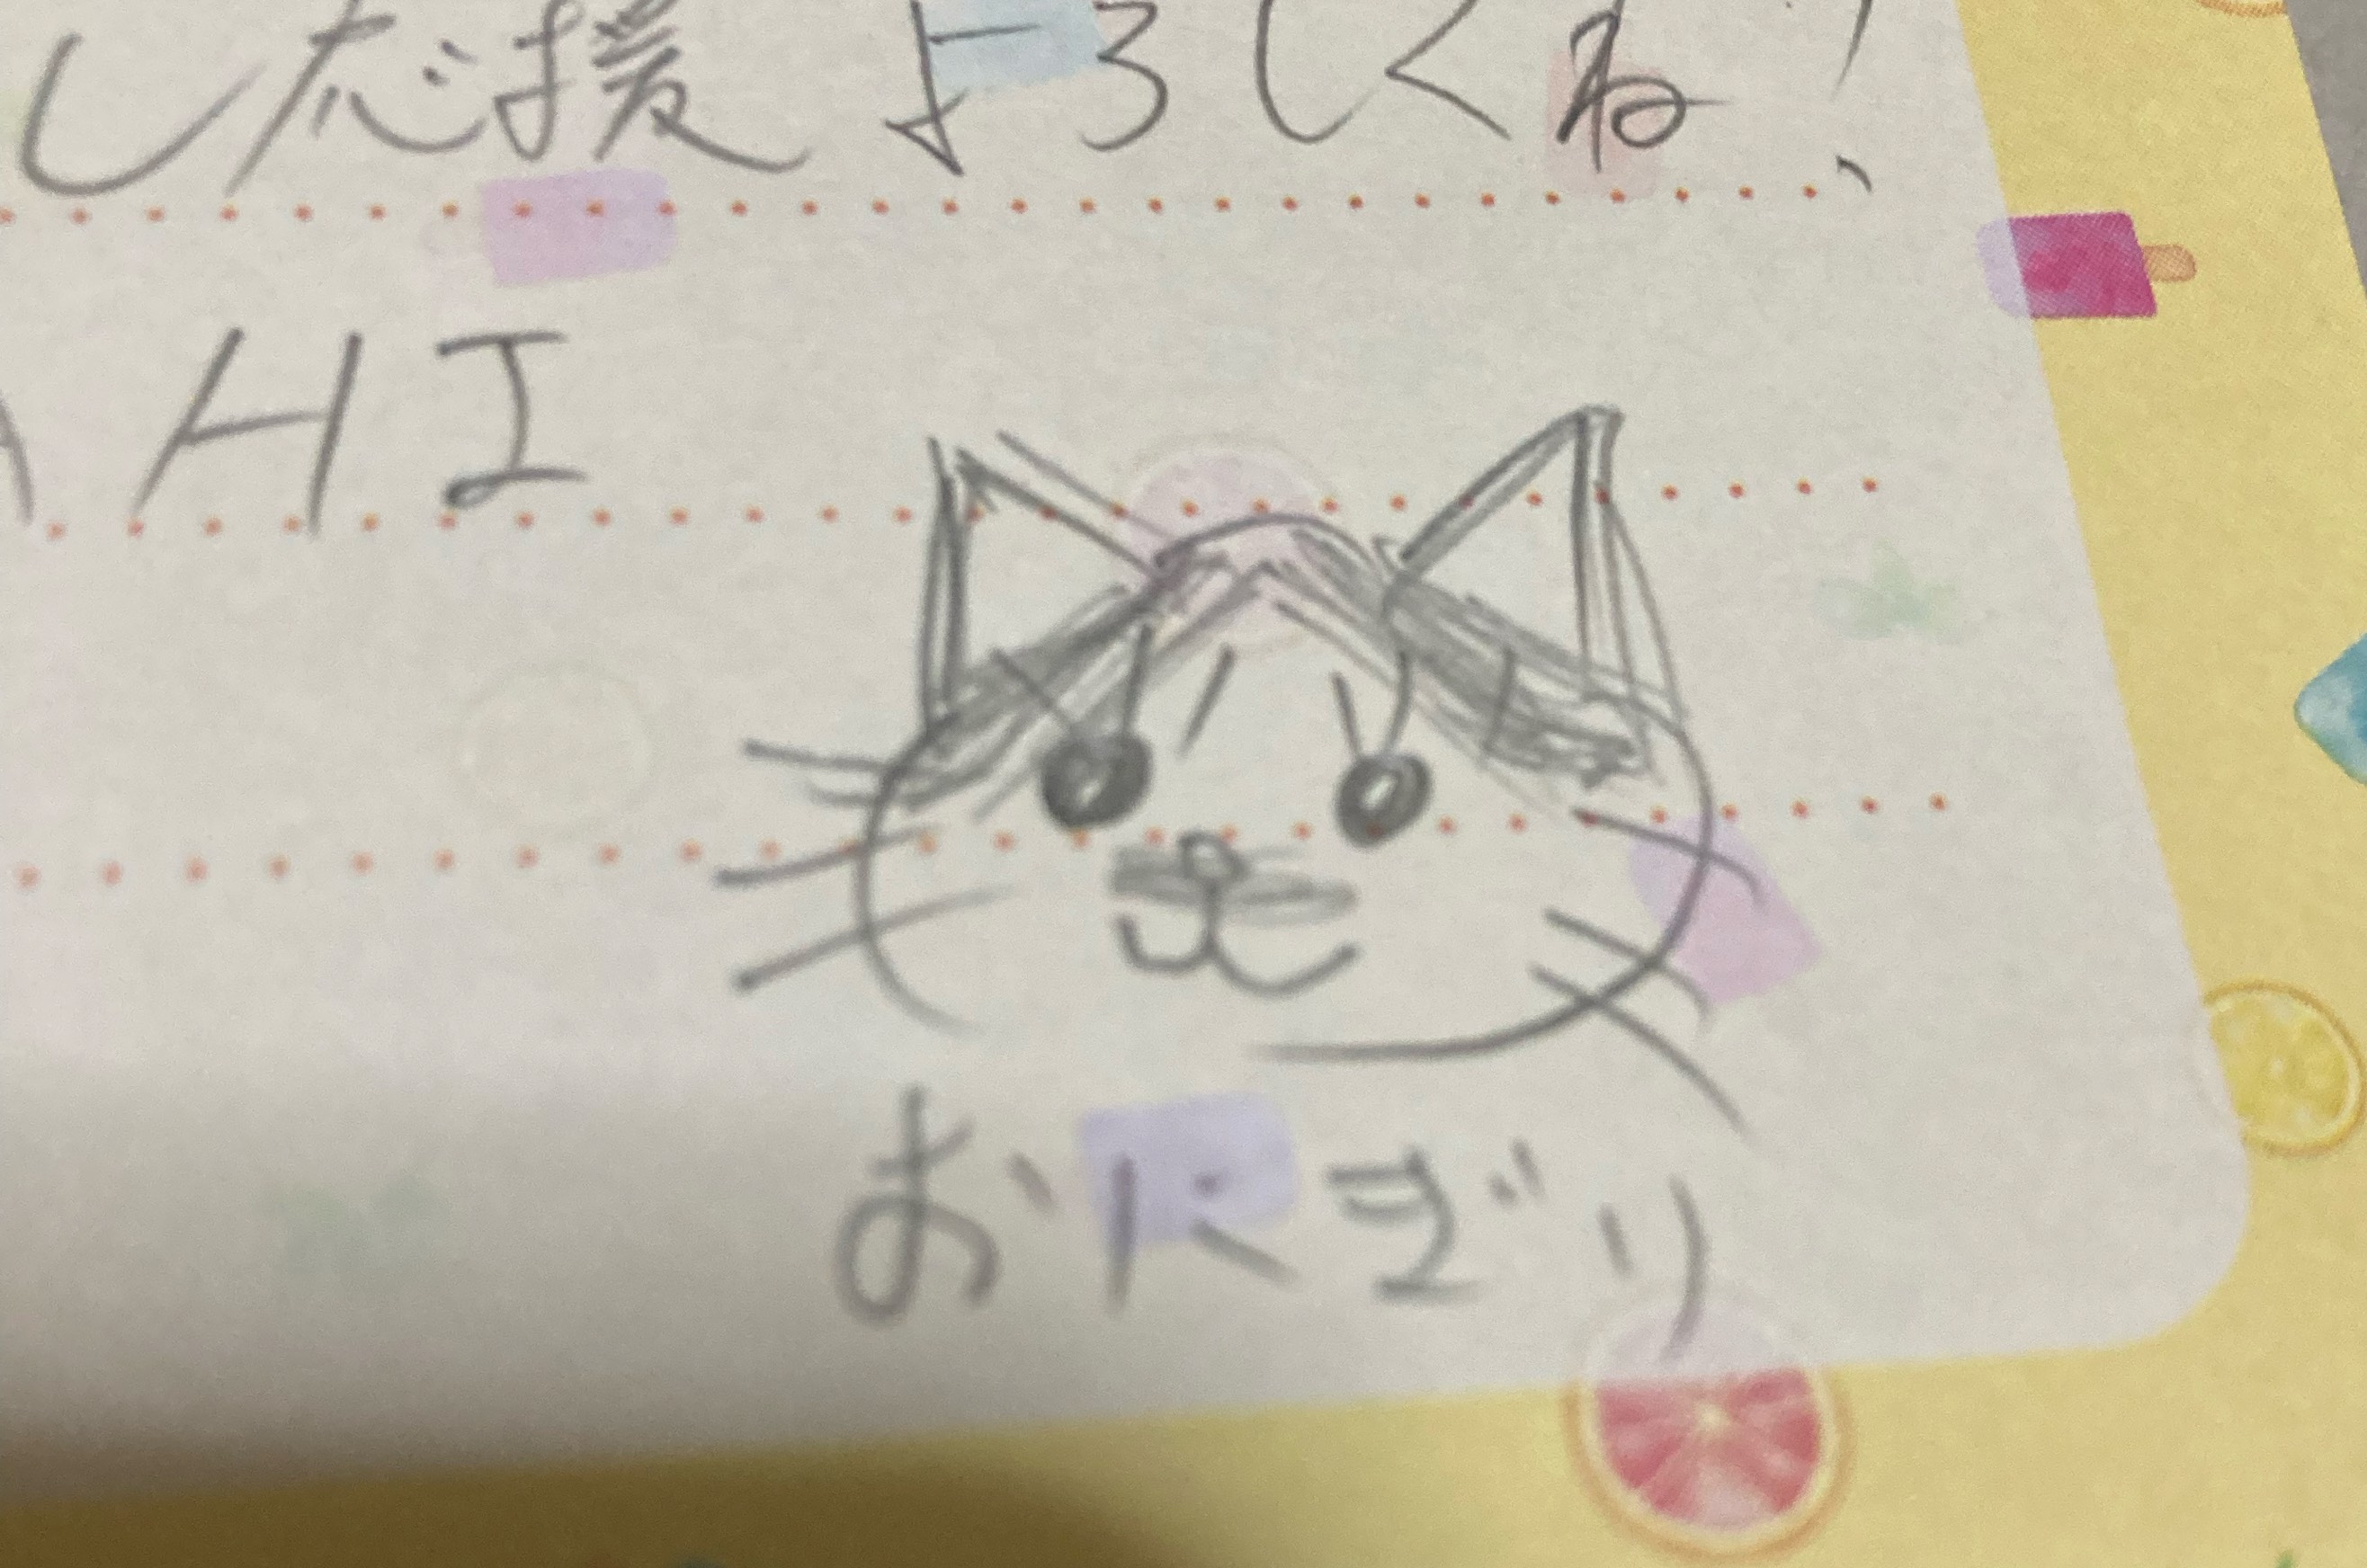 し応援よろしくね!
AHI
おにぎり